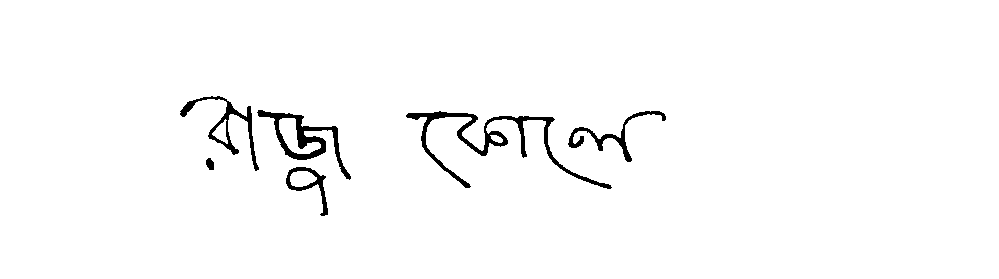 রাজু কোলে